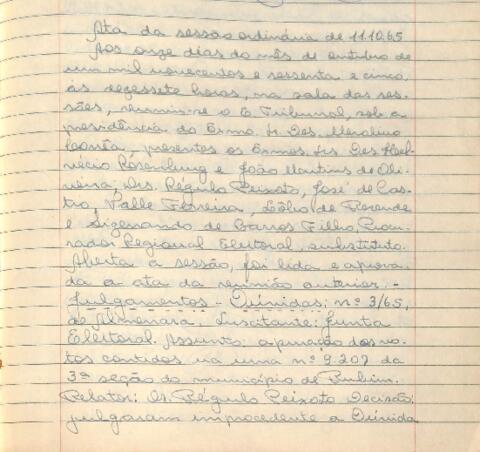 Ata da sessão ordinária de 11.10.65
Aos onze dias do mês de outubro de
um mil novecentos e sessenta e cinco,
às dezessete horas, na sala das ses-
sões, reuniu-se o E. Tribunal, sob a
presidência do Exmo. Sr. Des. Merolino
Corrêa, presentes os Exmos. Srs. Des. Hel-
vécio Rosenburg e João Martins de Oli-
veira; Drs. Régulo Peixoto, José de Cas-
tro, Valle Ferreira, Cólho de Rezende
e Sigenando de Barros Filho, Procu-
rador Regional Eleitoral, substituto.
Aberta a sessão, foi lida e aprova-
da a ata da reunião anterior. -
Julgamentos - Dúvidas: nº 3/65,
de Almenara. Suscitante: Junta
Eleitoral. Assunto: apuração dos vo-
tos contidos na urna nº 9.207 da
3ª seção do município de Rubim.
Relator: Dr. Régulo Peixoto Decisão:
julgaram improcedente a Dúvida